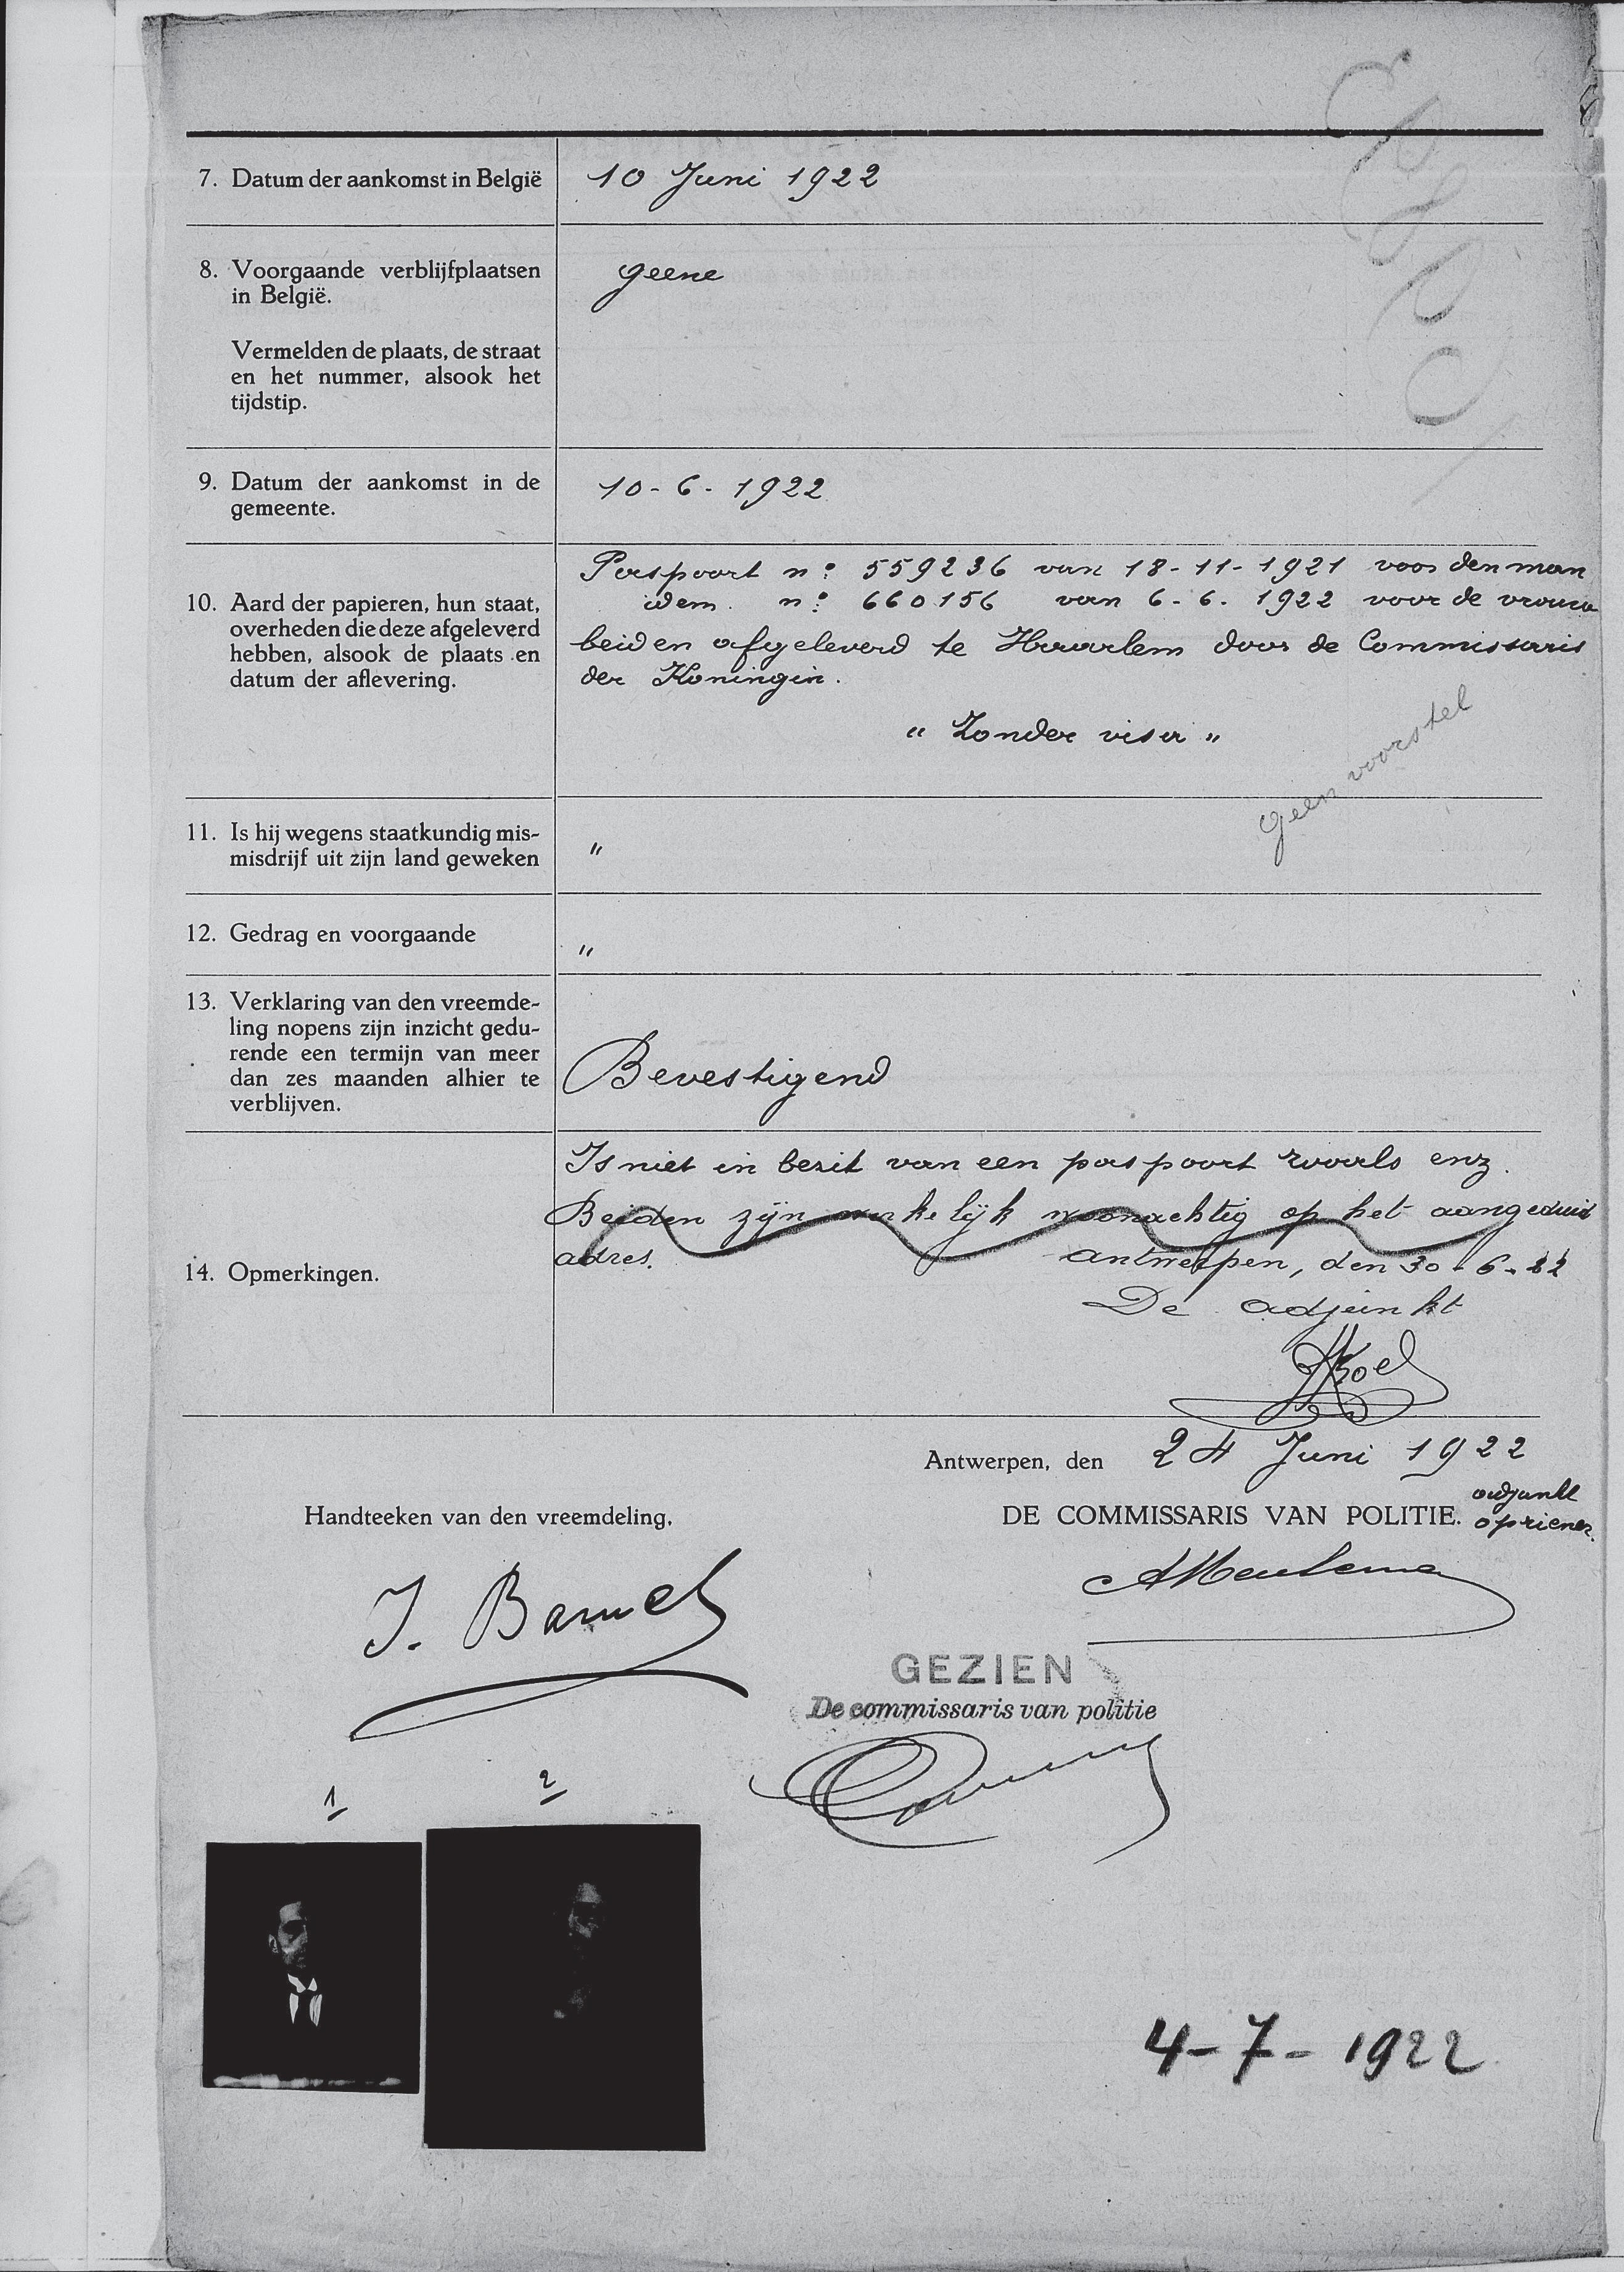 7. Datum der aankomst in België
10 Juni 1922
8. Voorgaande verblijfplaatsen
in België.
geene
Vermelden de plaats, de straat
en het nummer, alsook het
tijdstip.
9. Datum der aankomst in de
gemeente.
10-6-1922
10. Aard der papieren, hun staat,
overheden die deze afgeleverd
hebben, alsook de plaats en
datum der aflevering.
Paspoort nº 559236 van 18-11-1921 voor den man
idem. nº 660156 van 6-6-1922 voor de vrouw
beiden afgeleverd te Haarlem door de Commissaris
der Koningin.
" Zonder visa "
geen voorstel
11. Is hij wegens staatkundig mis-
misdrijf uit zijn land geweken
"
12. Gedrag en voorgaande
"
13. Verklaring van den vreemde-
ling nopens zijn inzicht gedu-
rende een termijn van meer
dan zes maanden alhier te
verblijven.
Bevestigend
14. Opmerkingen.
Is niet in bezit van een paspoort zooals enz.
Beiden zijn werkelijk woonachtig op het aangeduid
adres. Antwerpen, den 30-6-22
De adjunkt
Antwerpen, den 24 Juni 1922
Handteeken van den vreemdeling,
DE COMMISSARIS VAN POLITIE.
adjunkt
opziener.
J. Baruch
GEZIEN
De commissaris van politie
1
2
4-7-1922